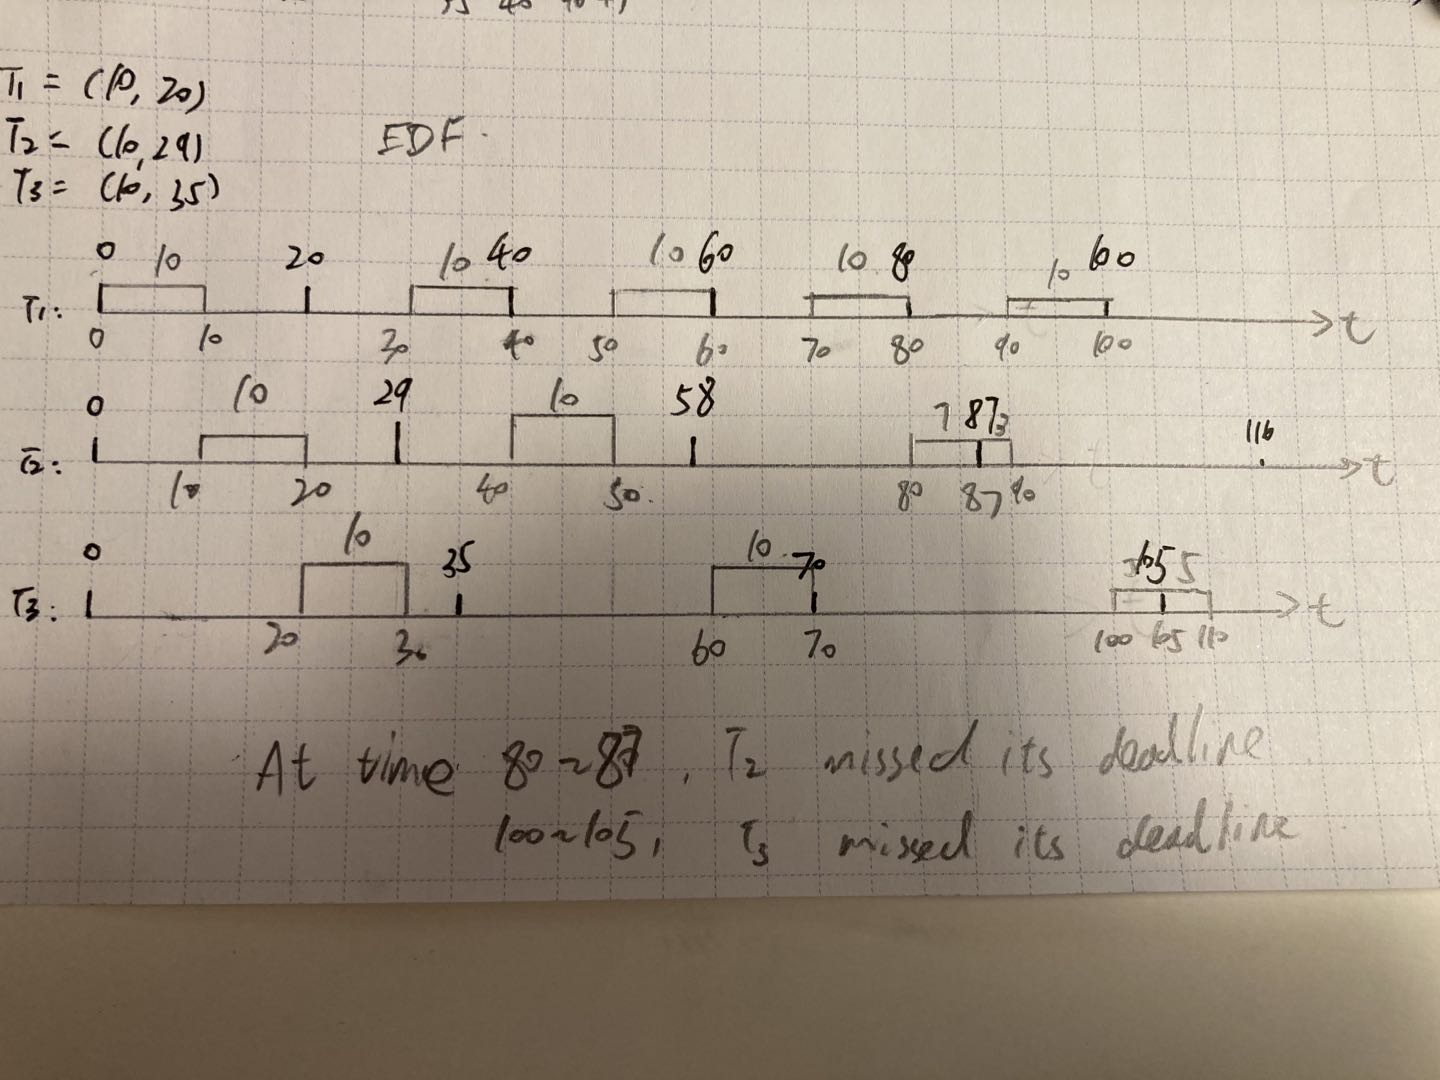 T1 = (10, 20)
T2 = (10, 29)
T3 = (10, 35)
EDF.
0 10 20 10 40 10 60 10 80 10 100
T1:
0 10 30 40 50 60 70 80 90 100 t
0 10 29 10 58 7 87 3 116
T2:
10 20 40 50. 80 87 90 t
0 10 35 10 70 5 5
T3:
20 30 60 70 100 105 110 t
At time 80~87, T2 missed its deadline.
100~105, T3 missed its deadline